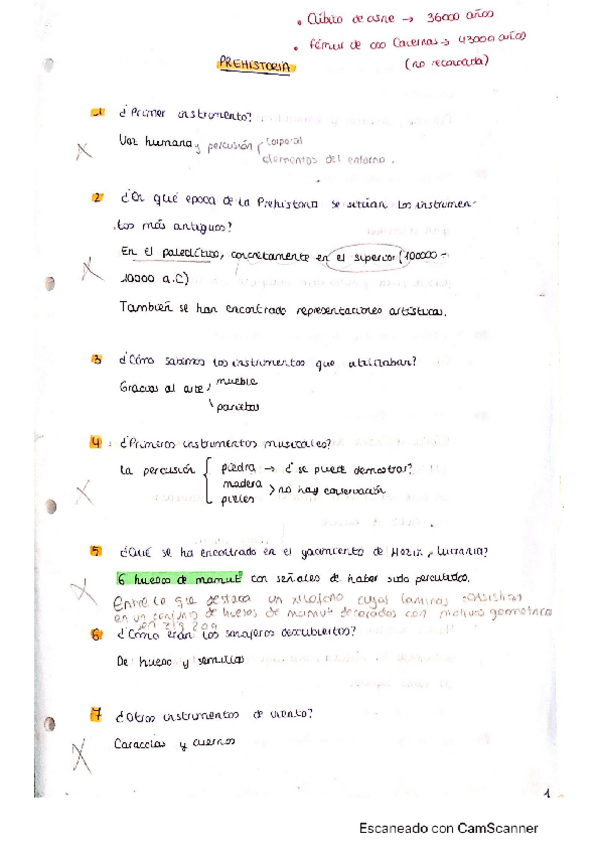 • Cúbito de cisne → 36000 años
• Fémur de oso Cavernas → 43000 años
(no reconocida)
PREHISTORIA
1 ¿Primer instrumento?
Voz humana y percusión corporal
elementos del entorno.
2 ¿En qué época de la Prehistoria se sitúan los instrumen-
tos más antiguos?
En el paleolítico, concretamente en el superior (100000 -
10000 a.C)
También se han encontrado representaciones artísticas.
3 ¿Cómo sabemos los instrumentos que utilizaban?
Gracias al arte mueble
parietas
4 ¿Primeros instrumentos musicales?
La percusión { piedra → ¿se puede demostrar?
madera
pieles > no hay conservación
5 ¿Qué se ha encontrado en el yacimiento de Mezin, Lucrania?
6 huesos de mamut con señales de haber sido percutidos.
Entre lo que destaca un xilofono cuyas laminas consistias
en un conjunto de huesos de mamut decorados con motivos geometricos
en zig zag
6 ¿Cómo eran los sonajeros descubiertos?
De hueso y semillas
7 ¿Otros instrumentos de viento?
Caracolas y cuernos
1
Escaneado con CamScanner